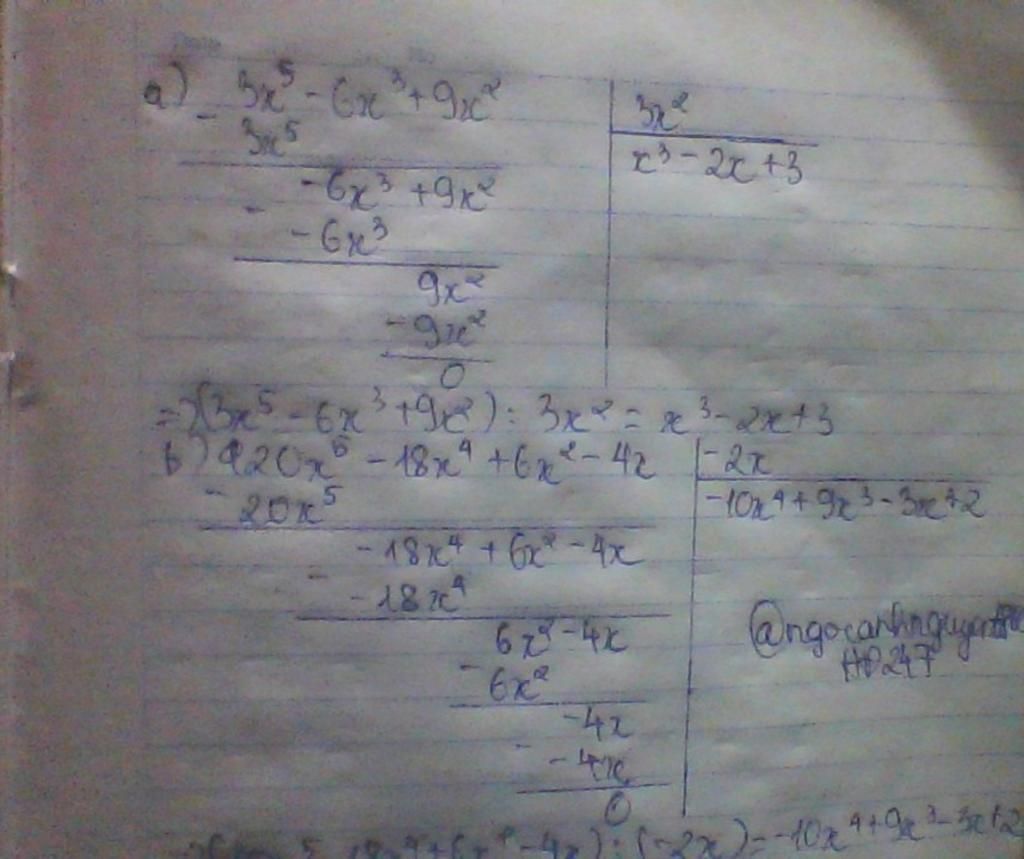 a) 3x⁵ - 6x³ + 9x² | 3x²
- 3x⁵ | x³ - 2x + 3
-6x³ + 9x²
- -6x³
9x²
- 9x²
0
=> (3x⁵ - 6x³ + 9x²) : 3x² = x³ - 2x + 3
b) 20x⁵ - 18x⁴ + 6x² - 4x | -2x
- 20x⁵ | -10x⁴ + 9x³ - 3x + 2
-18x⁴ + 6x² - 4x
- -18x⁴
6x² - 4x
- 6x²
-4x
- -4x
0
@ngocanhnguyen
HD247
- 4x) : (-2x) = -10x⁴ + 9x³ - 3x + 2